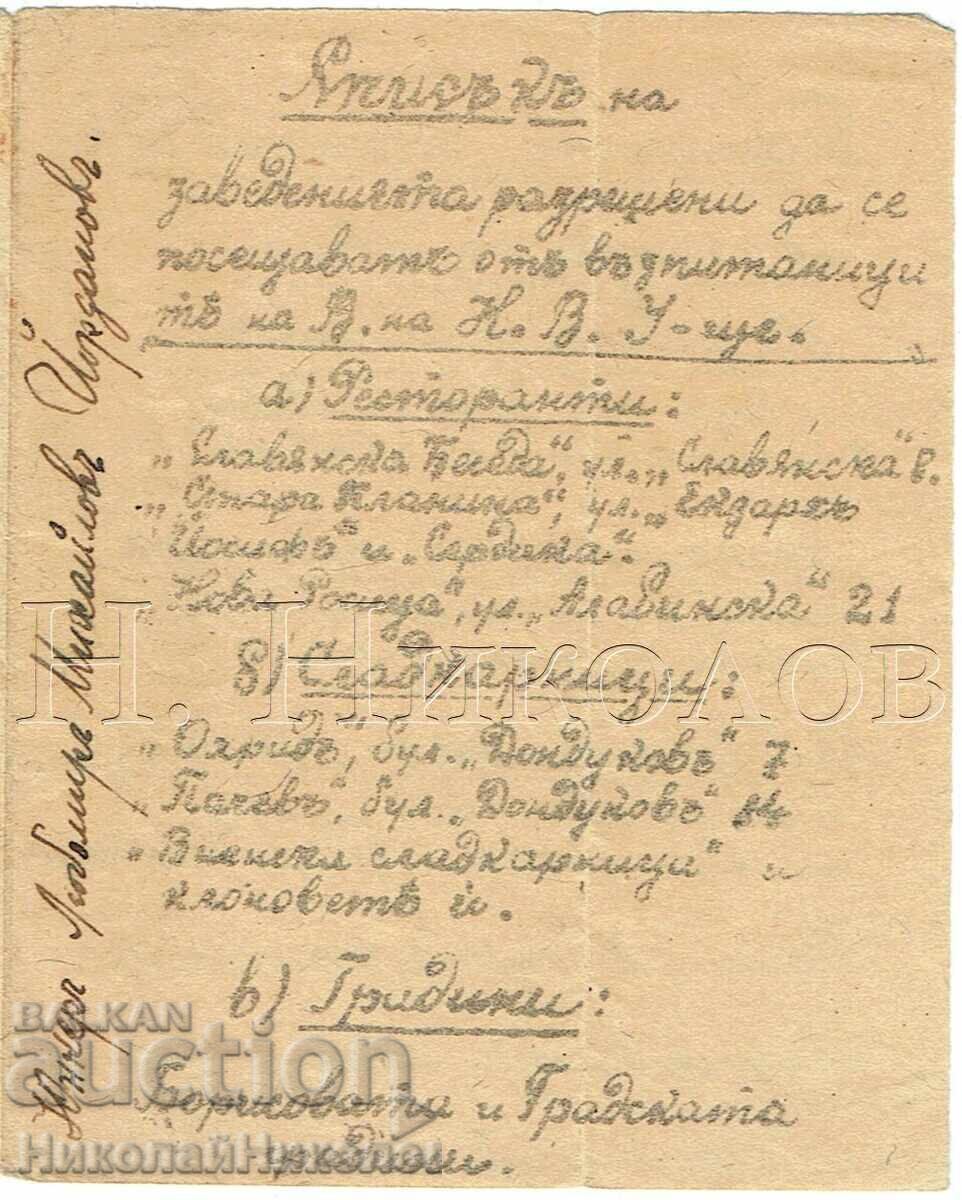 Списъкъ на
заведенията разрешени да се
посещаватъ отъ възпитаници
тѣ на В. на Н. В. У-ще.
а) Ресторанти:
„Славянска Беседа“, ул. „Славянска“ 8.
„Стара Планина“, ул. „Екзархъ
Йосифъ“ и „Сердика“.
Нова Росица“, ул. „Алабинска“ 21
б) Сладкарници:
„Охридъ“, бул. „Дондуковъ“ 7
„Пачевъ“, бул. „Дондуковъ“
„Виенски сладкарници“ и
клоноветѣ ѝ.
в) Градини:
Борисовата и Градската
градини.
Юнкеръ Любомиръ Михайловъ Йордановъ.
Н. НИКОЛОВ
BALKAN
auction
НиколайНиколов